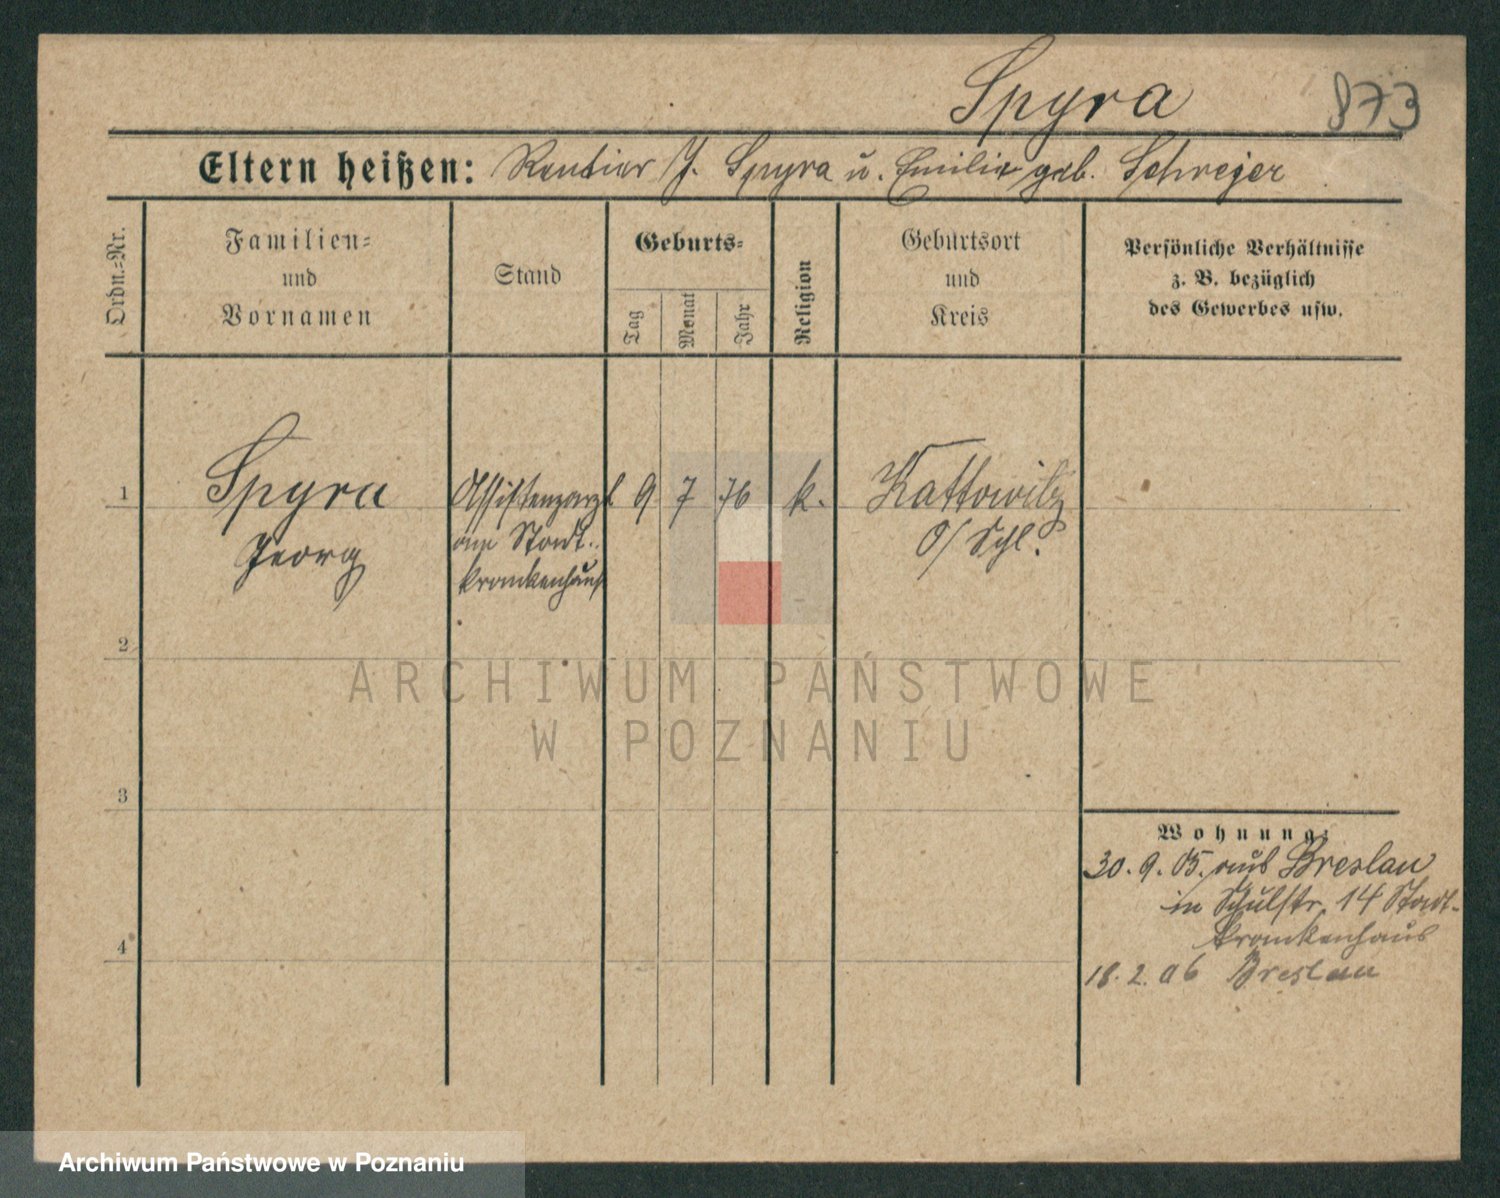 Spyra 873
Eltern heißen: Rentier J. Spyra u. Emilie geb. Schrejer
Ordn.=Nr.
Familien=
und
Vornamen
Stand
Geburts=
Tag
Monat
Jahr
Religion
Geburtsort
und
Kreis
Persönliche Verhältnisse
z. B. bezüglich
des Gewerbes usw.
1 Spyra Assistenzarzt 9 7 76 k. Kattowitz
Georg am Stadt. O/Schl.
krankenhaus
2
ARCHIWUM PAŃSTWOWE
W POZNANIU
3
Wohnung:
30. 9. 05. aus Breslau
in Schulstr. 14 Stadt-
krankenhaus
4
18. 2. 06 Breslau
Archiwum Państwowe w Poznaniu